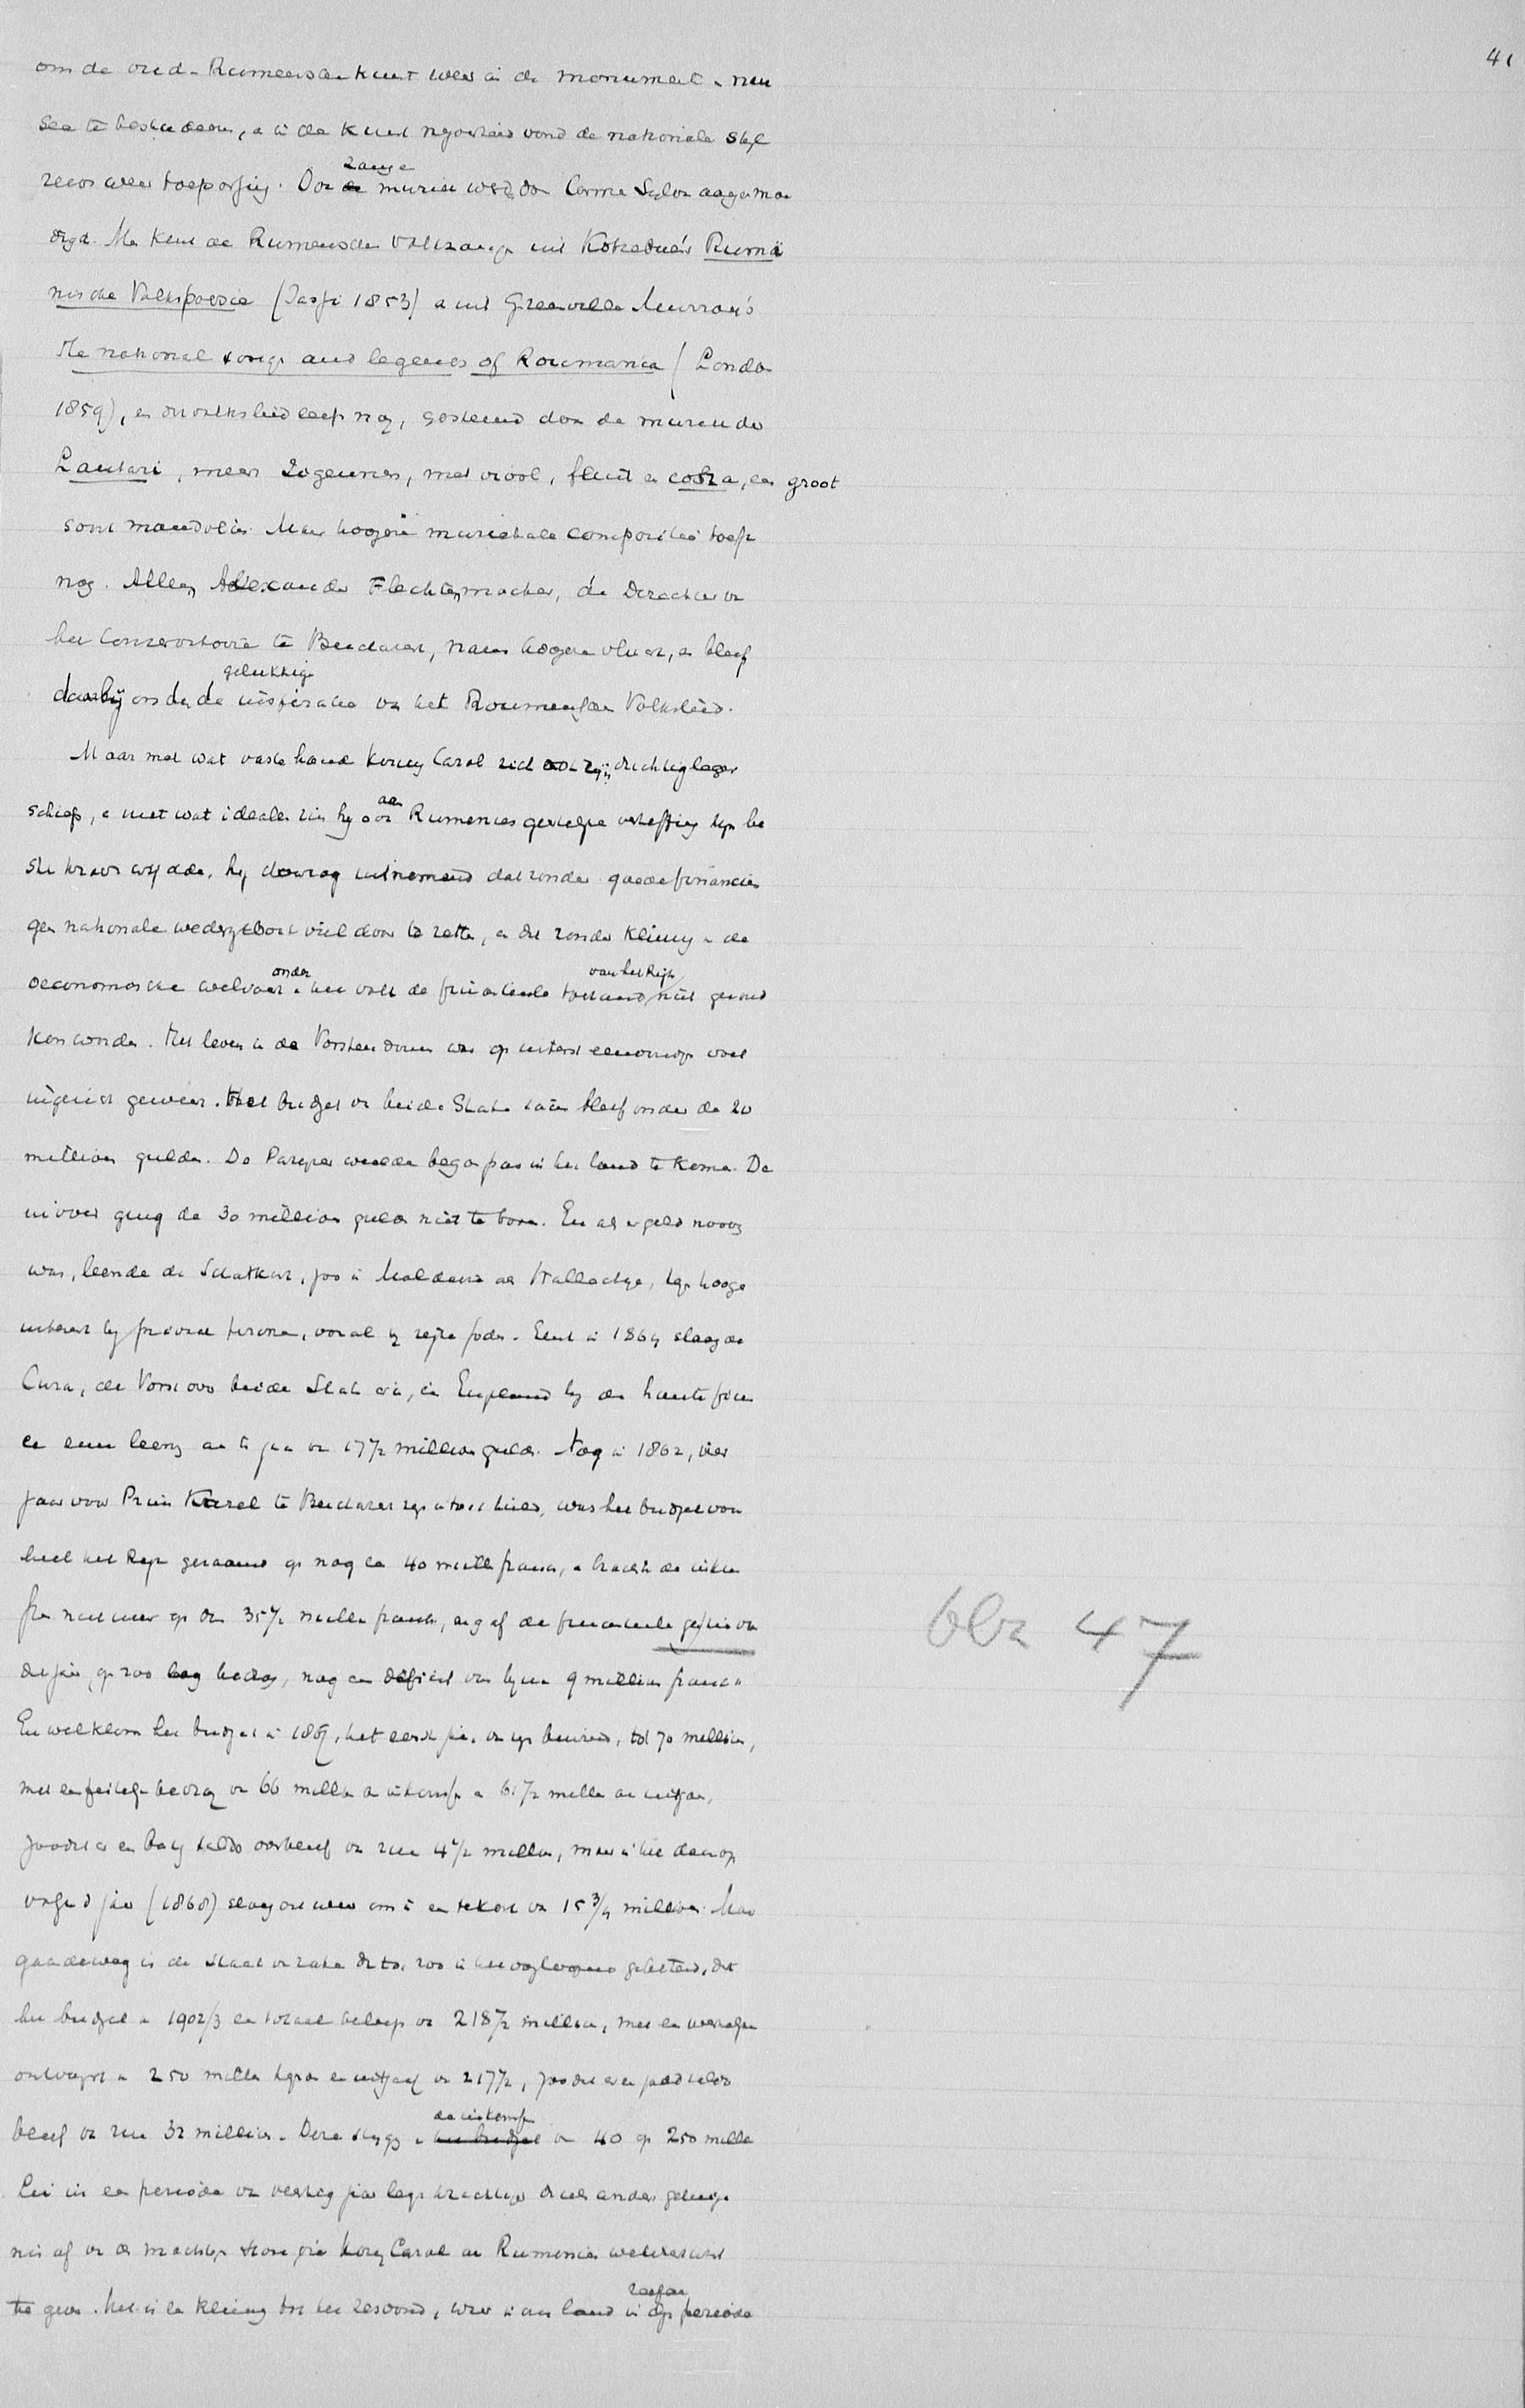 41
om de oud-Rumeensche kunst weer in de monumenten
te bestudeeren, en in de kunstnyverheid vond de nationale styl
reeds weer toepassing. Ook zang en muziek werd door Carmen Sylva aangemoe
digd. Men kent de Rumeensche Volkszangen uit Kotzebue's Rumä
nische Volkspoesie (Jassi 1853) en uit Grenville Murray's
The national songs and legends of Roumania (London
1859), en dit volkslied leeft nog, gesteund door de muziek der
Lautari, meest Zigeuners, met viool, fluit en cobza, een groot
soort mandoline. Maar hoogere muzikale compositie
nog. Alleen Alexander Flechtenmacher, de Directeur van
het Conservatoire te Bucharest, nam hooger vlucht, en bleef
daarbij onder de gelukkige inspiratie van het Roumeensche Volkslied.
Maar met wat vaste hand koning Carol zich ook zijn krijgsleger
schiep, en met wat idealen zin hy aan Rumenies geestelyke verheffing zyn be
ste kracht wydde, hy doorzag uitnemend dat zonder goede financien
geen nationale wedergeboorte viel door te zetten, en dat zonder klimmen de
oeconomische welvaart onder het volk de financieele toestand van het Ryk niet gezond
kon worden. Het leven in de Vorstendommen was op uiterst eenvoudigen voet
ingericht geweest. Het budget van beide Staten saam bleef onder de 20
millioen gulden. De Parysche weelde begon pas in het land te komen. De
invoer ging de 30 millioen gulden niet te boven. En als er geld noodig
was, leende de Schatkist, zoo in Moldavie als Wallachye, tegen hooge
interest by private personen, vooral by ryke Joden. Eerst in 1864 slaagde
Cuza, de Vorst over beide Staten, er in, in Engeland by de haute finan
ce een leening aan te gaan van 17½ millioen gulden. Nog in 1862, vier
jaar voor Prins Karel te Bucharest zyn intocht hield, was het budget voor
heel het Ryk geraamd op nog geen 40 mille francs, en bracht de inkom
sten niet meer op dan 35½ mille francs, en gaf de financieele gestie van
dit jaar, op zoo laag bedrag, nog een deficit van byna 9 millioen francs.
En wel klom het budget in 1867, het eerste jaar van zyn bewind, tot 70 millioen,
met een feitelyk bedrag van 66 mille aan inkomsten en 61½ mille aan uitgaven,
zoodat er een batig saldo overbleef van ruim 4½ mille, maar in het daarop
volgend jaar (1868) sloeg dit weer om in een tekort van 15¾ millioen. Maar
gaandeweg is de staat van zaken
het budget in 1902/3 een totaal beliep van 218½ millioen, met een werkelyke
ontvangst van 250 mille tegen een uitgaaf van 217½, zoodat er een goed saldo
bleef van ruim 32 millioen. Deze styging van de inkomsten van 40 op 250 mille
Lei in een periode van veertig jaar legt krachtiger dan iets anders getuige
nis af van de machtigen stoot, dien koning Carol aan Rumenies welvaart wist
te geven. Het is een klimmen
blz 47